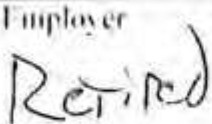 Employer
Retired